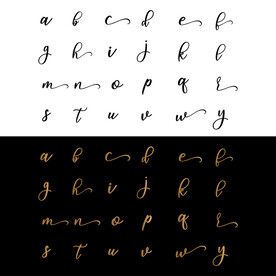 a b c d e f
g h i j k l
m n o p q r
s t u v w y
a b c d e f
g h i j k l
m n o p q r
s t u v w y